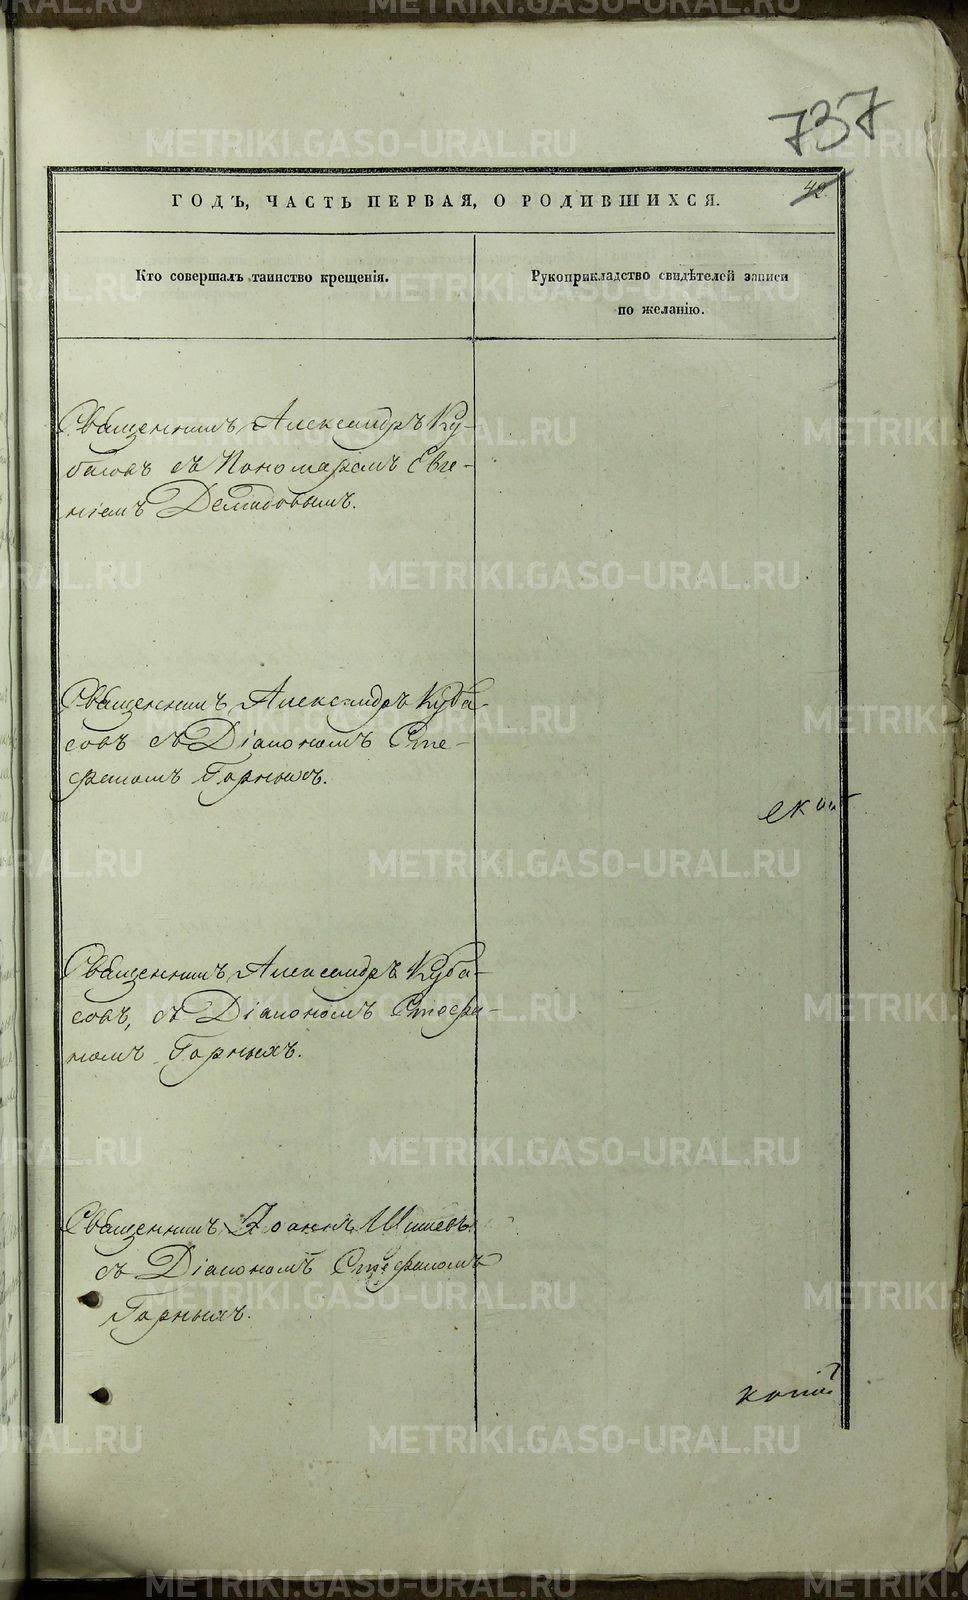 737
42
ГОДЪ, ЧАСТЬ ПЕРВАЯ, О РОДИВШИХСЯ.
Кто совершалъ таинство крещенія.
Рукоприкладство свидѣтелей записи
по желанію.
Священникъ Александръ Ку-
басовъ съ Пономаремъ Евге-
ніемъ Демидовымъ.
Священникъ Александръ Куба-
совъ съ Діакономъ Сте-
фаномъ Горныхъ.
Священникъ Александръ Куба-
совъ, съ Діакономъ Стефа-
номъ Горныхъ.
Священникъ Іоаннъ Шишевъ
съ Діакономъ Стефаномъ
Горныхъ.
METRIKI.GASO-URAL.RU